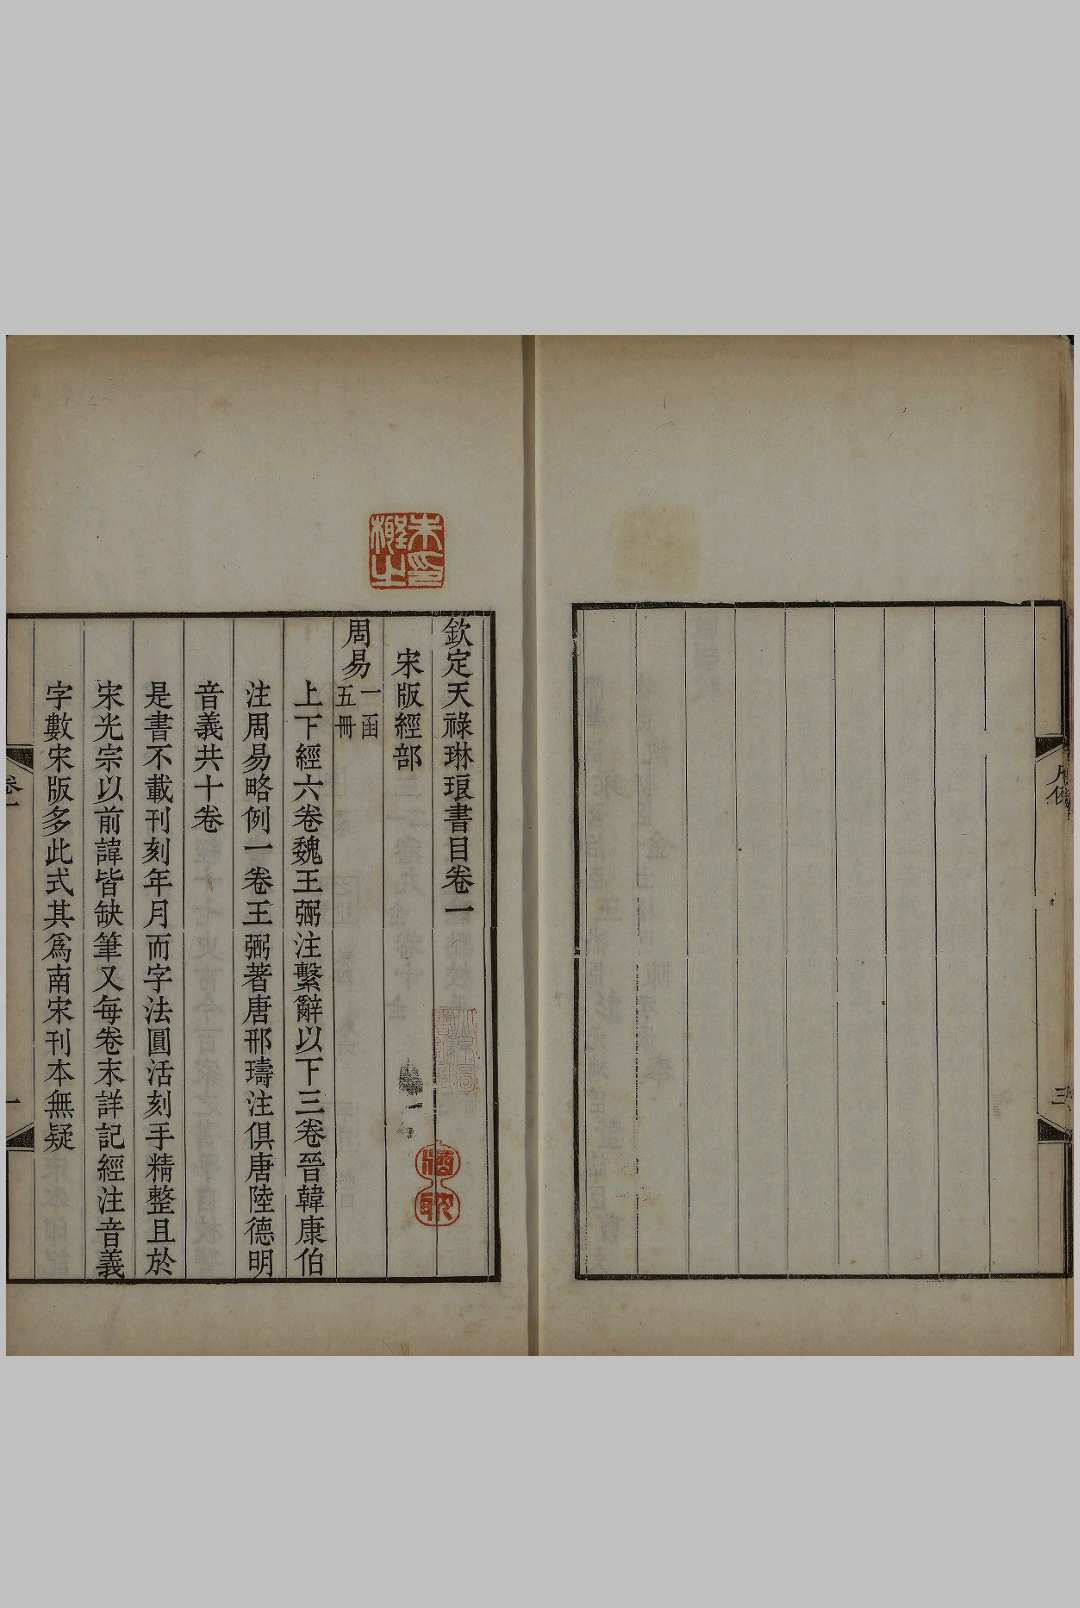 三
欽定天祿琳琅書目卷一
宋版經部
周易一函五冊
上下經六卷魏王弼注繫辭以下三卷晉韓康伯
注周易略例一卷王弼著唐邢璹注俱唐陸德明
音義共十卷
是書不載刊刻年月而字法圓活刻手精整且於
宋光宗以前諱皆缺筆又每卷末詳記經注音義
字數宋版多此式其爲南宋刊本無疑
卷一
一
朱印
檉之